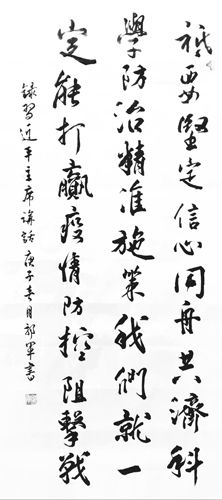 祗要堅定信心同舟共濟科
學防治精准施策我們就一
定能打贏疫情防控阻擊戰
錄習近平主席講話庚子春月郭軍書